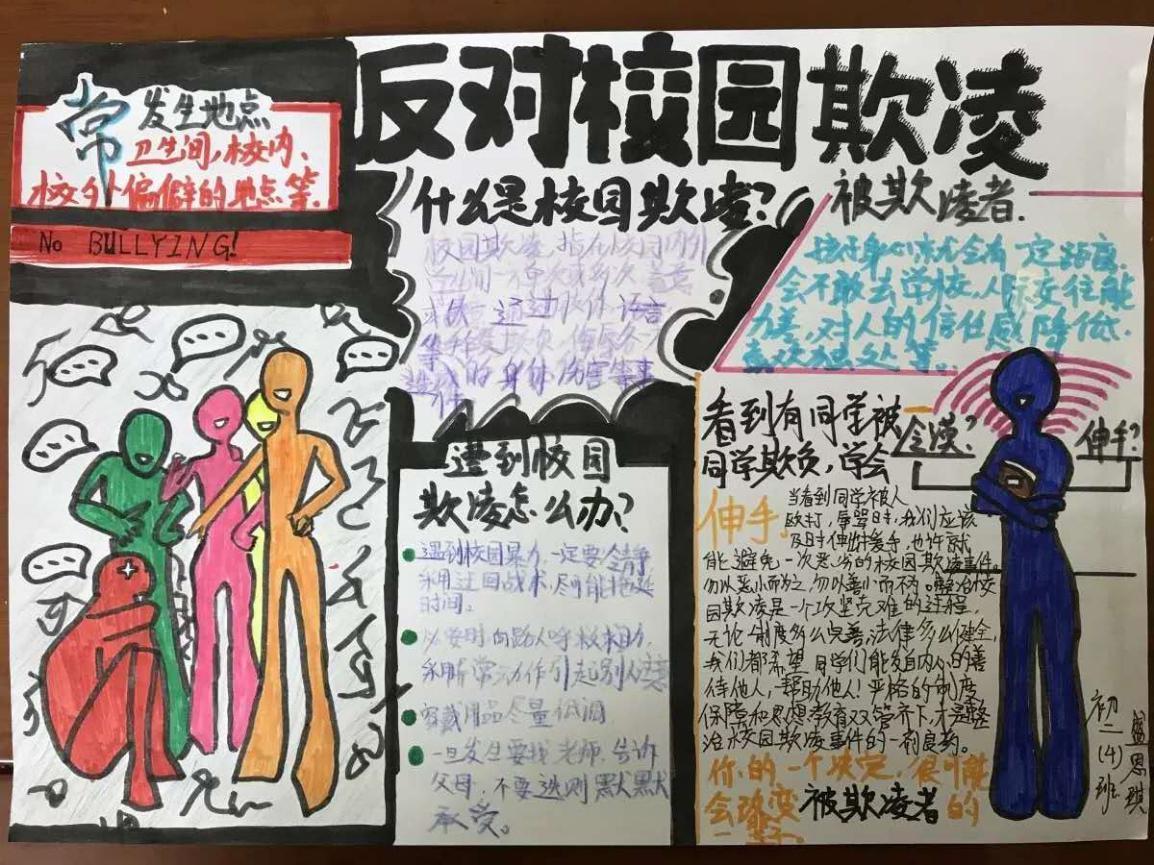 反对校园欺凌
常发生地点
卫生间，校内、
校外偏僻的地点等.
No BULLYING!
什么是校园欺凌?
校园欺凌，指在校园内外
学生间一方单次或多次
通过肢体、语言
等手段
的身体伤害等事
被欺凌者.
会不敢去学校，人际交往能
力差，对人的信任感降低.
喜欢独处等...
遭到校园
欺凌怎么办?
遇到校园暴力，一定要冷静
采用迂回战术，尽可能拖延
时间。
必要时向路人呼救求助，
采用异常动作引起别人注意
穿戴用品尽量低调
一旦发生要找老师，告诉
父母，不要选则默默
承受。
看到有同学被
同学欺负，学会
冷漠?
伸手?
伸手。
当看到同学被人
欧打，辱骂时，我们应该
及时伸出援手，也许就
能避免一次恶劣的校园欺凌事件。
勿以恶小而为之，勿以善小而不为。整治校
园欺凌是一个攻坚克难的过程，
无论制度多么完善，法律多么健全，
我们都希望同学们能发自内心的善
待他人，帮助他人！严格的制度
保障和思想教育双管齐下，才是整
治校园欺凌事件的一剂良药。
你的一个决定，很可能
会改变被欺凌者的
一生
初二(4)班
盛思琪